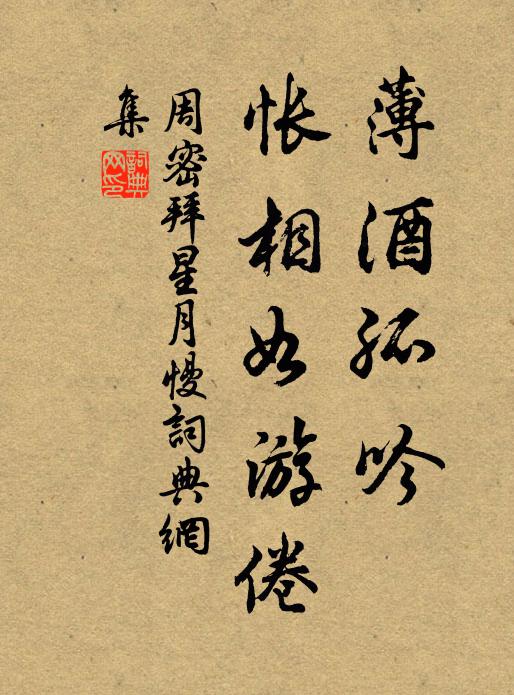 薄酒孤吟
悵相如游倦
周密拜星月慢詞典網
集
詞典
网印